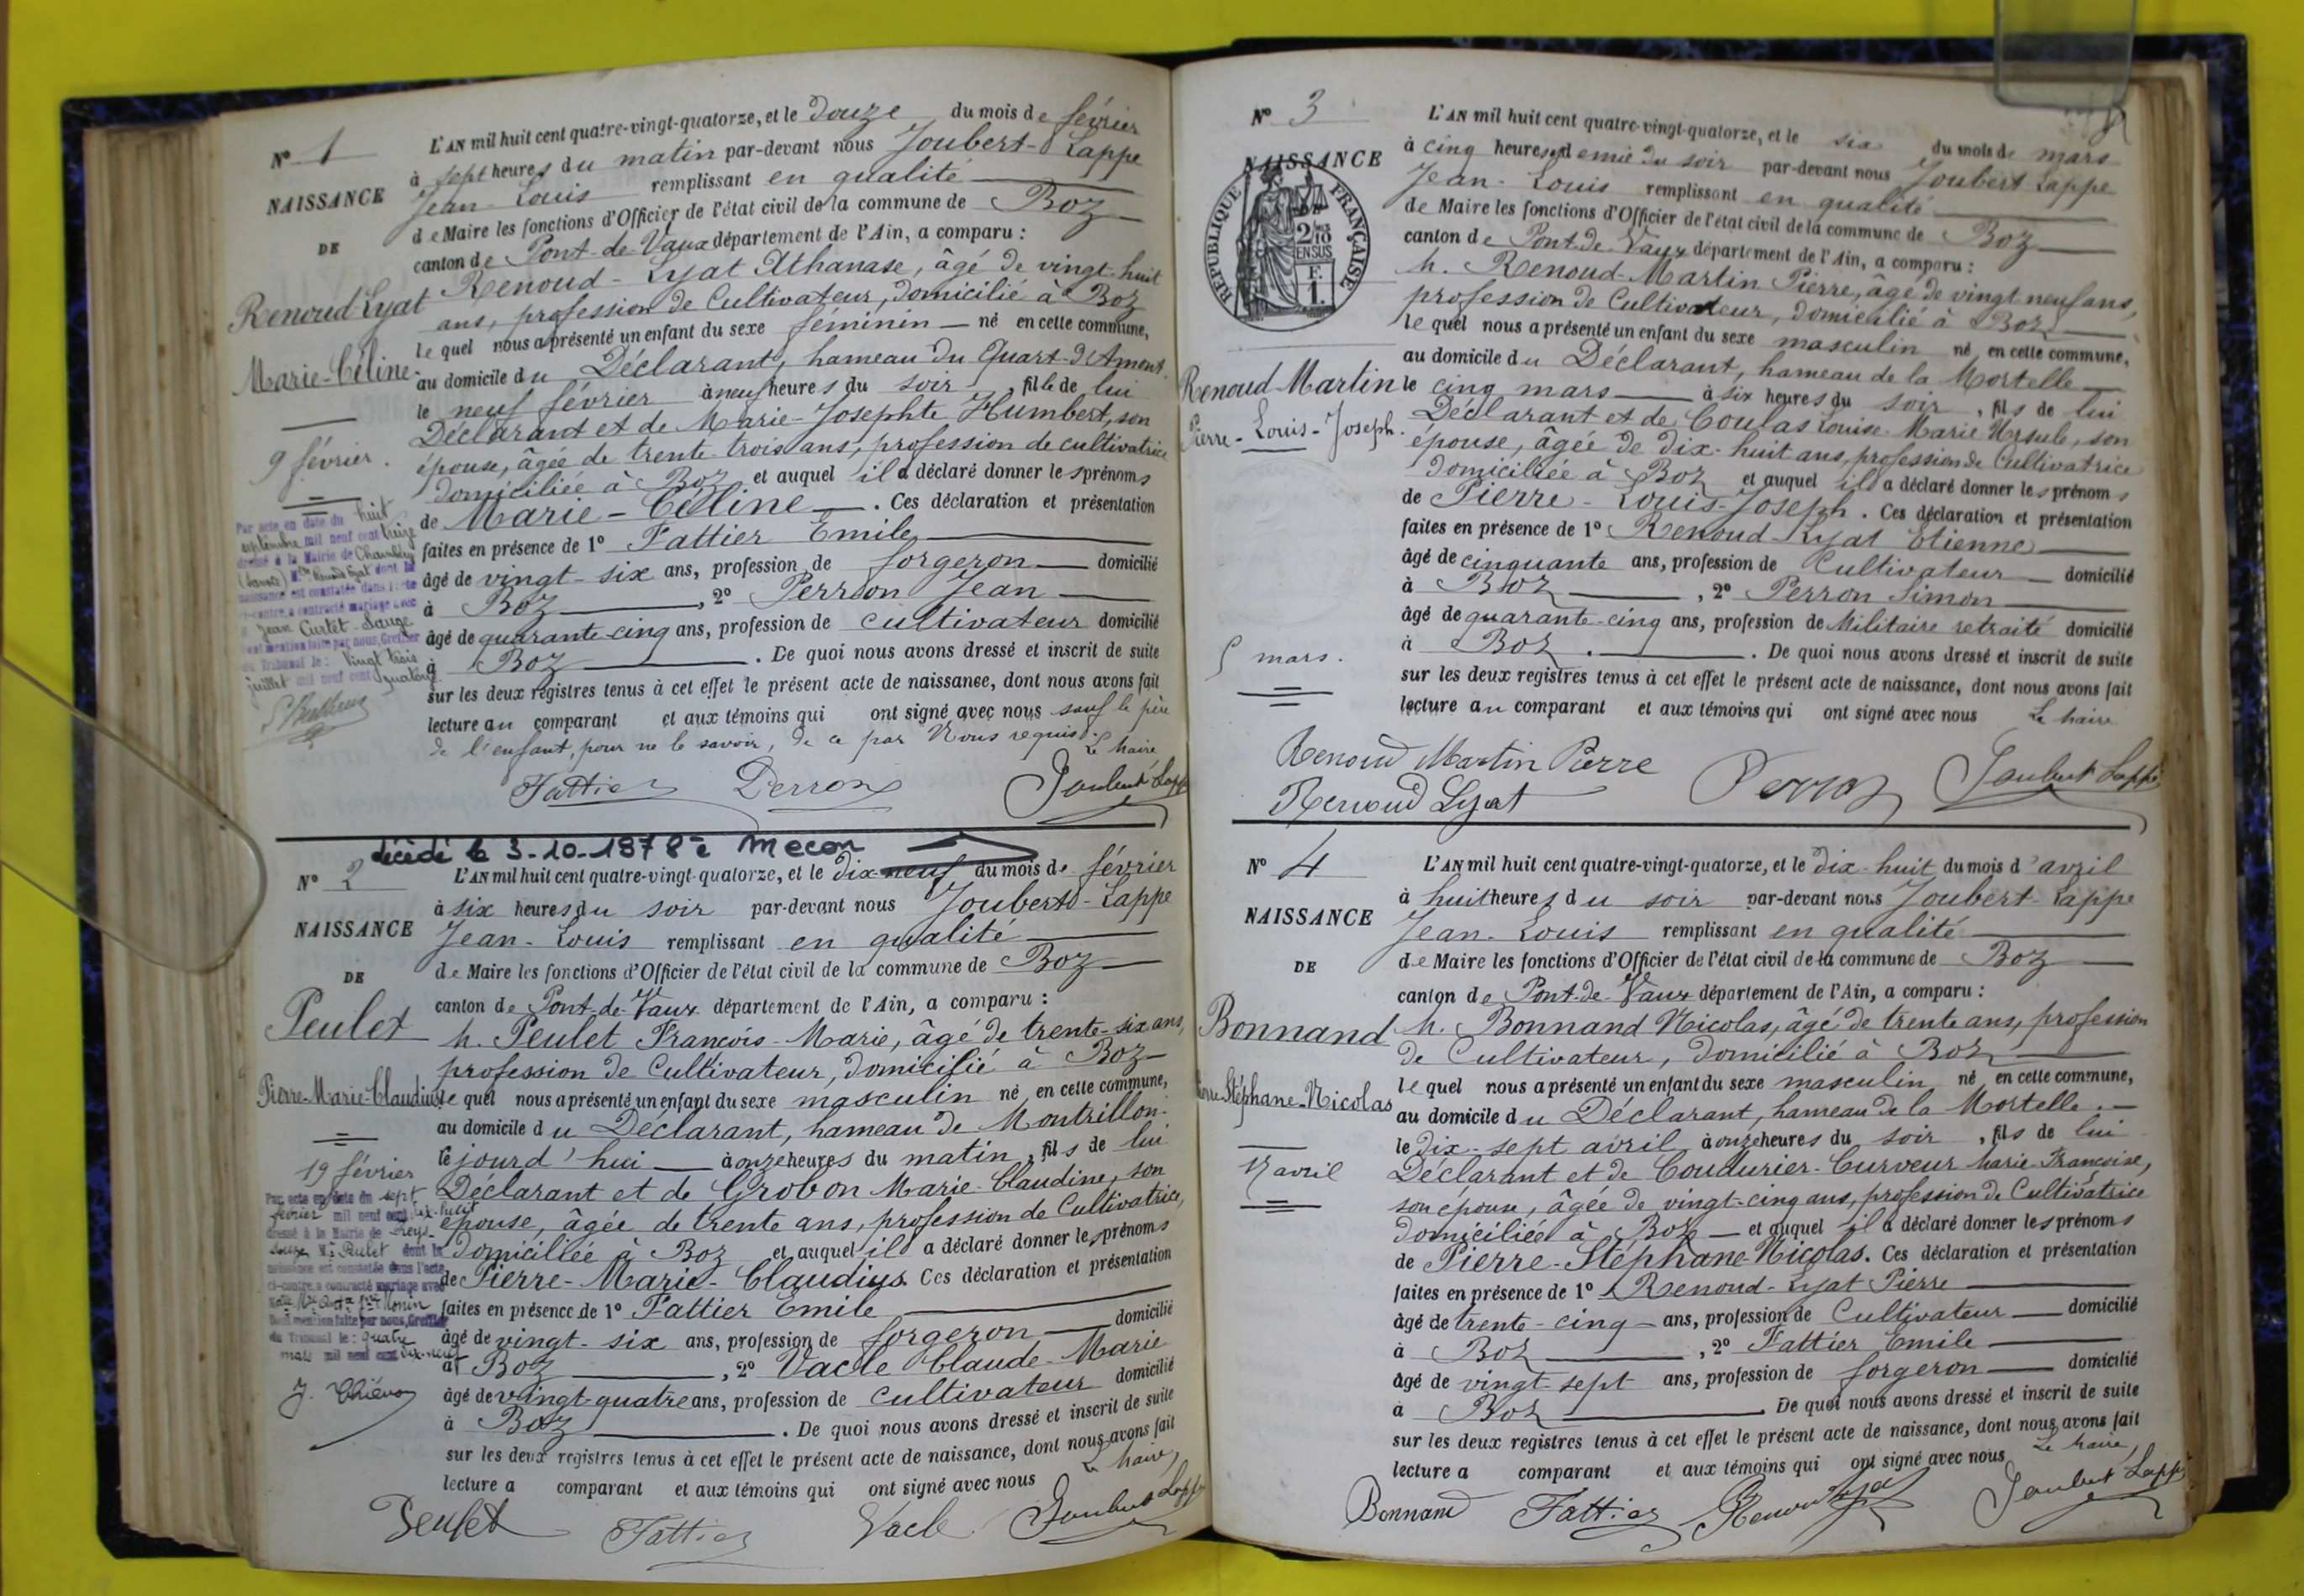 N° 1
NAISSANCE
DE
Renoud-Lyat
Marie-Céline
9 février.
Par acte en date du huit
septembre mil neuf cent treize
dressé à la Mairie de Chambéry
(Savoie) Mlle Renoud Lyat dont la
naissance est constatée dans l'acte
ci-contre a contracté mariage avec
Jean Curtet
mention faite par nous, Greffier
du Tribunal le: Vingt trois
juillet mil neuf cent quatorze
L'AN mil huit cent quatre-vingt-quatorze, et le douze du mois de février
à sept heures du matin par-devant nous Joubert-Lappe
Jean-Louis remplissant en qualité
de Maire les fonctions d'Officier de l'état civil de la commune de Boz
canton de Pont-de-Vaux département de l'Ain, a comparu :
Renoud-Lyat Athanase, âgé de vingt-huit
ans, profession de Cultivateur, domicilié à Boz
le quel nous a présenté un enfant du sexe féminin né en cette commune,
au domicile du Déclarant, hameau du Quart-d'Amont
le neuf février à neuf heures du soir, fille de lui
Déclarant et de Marie-Josephte Humbert, son
épouse, âgée de trente-trois ans, profession de cultivatrice
domiciliée à Boz et auquel il a déclaré donner les prénoms
de Marie-Céline. Ces déclaration et présentation
faites en présence de 1° Fattier Emile
âgé de vingt-six ans, profession de forgeron domicilié
à Boz, 2° Perron Jean
âgé de quarante-cinq ans, profession de cultivateur domicilié
à Boz. De quoi nous avons dressé et inscrit de suite
sur les deux registres tenus à cet effet le présent acte de naissance, dont nous avons fait
lecture au comparant et aux témoins qui ont signé avec nous sauf le père
de l'enfant, pour ne le savoir, de ce par Nous requis.
Le Maire
Fattier Perron Joubert Lappe
décédé le 3-10-1978 à Mecon
N° 2
NAISSANCE
DE
Peulet
Pierre-Marie-Claudius
19 février
Par acte en date du sept
février mil neuf cent dix-huit
dressé à la Mairie de Reys-
souze, M. Peulet dont la
naissance est constatée dans l'acte
ci-contre a contracté mariage avec
Monin
mention faite par nous, Greffier
du Tribunal le: quatre
mars mil neuf cent dix-neuf
L'AN mil huit cent quatre-vingt-quatorze, et le dix-neuf du mois de février
à six heures du soir par-devant nous Joubert-Lappe
Jean-Louis remplissant en qualité
de Maire les fonctions d'Officier de l'état civil de la commune de Boz
canton de Pont-de-Vaux département de l'Ain, a comparu :
M. Peulet François-Marie, âgé de trente-six ans,
profession de Cultivateur, domicilié à Boz
le quel nous a présenté un enfant du sexe masculin né en cette commune,
au domicile du Déclarant, hameau de Montrillon.
le jourd'hui à onze heures du matin, fils de lui
Déclarant et de Grobon Marie-Claudine, son
épouse, âgée de trente ans, profession de Cultivatrice,
domiciliée à Boz et auquel il a déclaré donner les prénoms
de Pierre-Marie-Claudius. Ces déclaration et présentation
faites en présence de 1° Fattier Emile
âgé de vingt-six ans, profession de forgeron domicilié
à Boz, 2° Vacle Claude-Marie
âgé de vingt-quatre ans, profession de cultivateur domicilié
à Boz. De quoi nous avons dressé et inscrit de suite
sur les deux registres tenus à cet effet le présent acte de naissance, dont nous avons fait
lecture a comparant et aux témoins qui ont signé avec nous
Le Maire,
Peulet Fattier Vacle Joubert Lappe
N° 3
NAISSANCE
RÉPUBLIQUE FRANÇAISE
2/10 EN SUS
F.
1.
Renoud-Martin
Pierre-Louis-Joseph.
5 mars.
L'AN mil huit cent quatre-vingt-quatorze, et le six du mois de mars
à cinq heures demie du soir par-devant nous Joubert Lappe
Jean-Louis remplissant en qualité
de Maire les fonctions d'Officier de l'état civil de la commune de Boz
canton de Pont-de-Vaux département de l'Ain, a comparu :
M. Renoud-Martin Pierre, âgé de vingt-neuf ans,
profession de Cultivateur, domicilié à Boz
le quel nous a présenté un enfant du sexe masculin né en cette commune,
au domicile du Déclarant, hameau de la Mortelle
le cinq mars à six heures du soir, fils de lui
Déclarant et de Coulas Louise-Marie Ursule, son
épouse, âgée de dix-huit ans, profession de Cultivatrice
domiciliée à Boz et auquel il a déclaré donner les prénoms
de Pierre-Louis-Joseph. Ces déclaration et présentation
faites en présence de 1° Renoud-Lyat Etienne
âgé de cinquante ans, profession de Cultivateur domicilié
à Boz, 2° Perron Simon
âgé de quarante-cinq ans, profession de Militaire retraité domicilié
à Boz. De quoi nous avons dressé et inscrit de suite
sur les deux registres tenus à cet effet le présent acte de naissance, dont nous avons fait
lecture au comparant et aux témoins qui ont signé avec nous Le Maire
Renoud Martin Pierre Perron Joubert Lappe
Renoud Lyat
N° 4
NAISSANCE
DE
Bonnand
Pierre-Stéphane-Nicolas
17 avril
L'AN mil huit cent quatre-vingt-quatorze, et le dix-huit du mois d'avril
à huit heures du soir par-devant nous Joubert-Lappe
Jean-Louis remplissant en qualité
de Maire les fonctions d'Officier de l'état civil de la commune de Boz
canton de Pont-de-Vaux département de l'Ain, a comparu :
M. Bonnand Nicolas, âgé de trente ans, profession
de Cultivateur, domicilié à Boz
le quel nous a présenté un enfant du sexe masculin né en cette commune,
au domicile du Déclarant, hameau de la Mortelle.
le dix-sept avril à onze heures du soir, fils de lui
Déclarant et de Coudurier-Curveur Marie-Françoise,
son épouse, âgée de vingt-cinq ans, profession de Cultivatrice
domiciliée à Boz et auquel il a déclaré donner les prénoms
de Pierre-Stéphane-Nicolas. Ces déclaration et présentation
faites en présence de 1° Renoud-Lyat Pierre
âgé de trente-cinq ans, profession de Cultivateur domicilié
à Boz, 2° Fattier Emile
âgé de vingt-sept ans, profession de forgeron domicilié
à Boz De quoi nous avons dressé et inscrit de suite
sur les deux registres tenus à cet effet le présent acte de naissance, dont nous avons fait
lecture a comparant et aux témoins qui ont signé avec nous Le Maire,
Bonnand Fattier Renoud Lyat Joubert Lappe